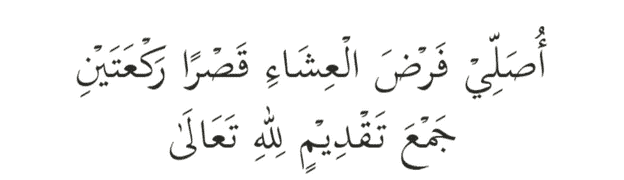 أُصَلِّيْ فَرْضَ الْعِشَاءِ قَصْرًا رَكْعَتَيْنِ
جَمْعَ تَقْدِيْمٍ لِلّٰهِ تَعَالَىٰ